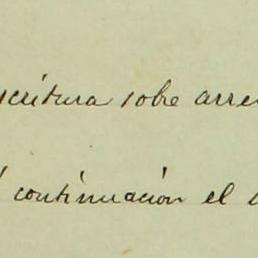 scritura sobre arre
continuación el